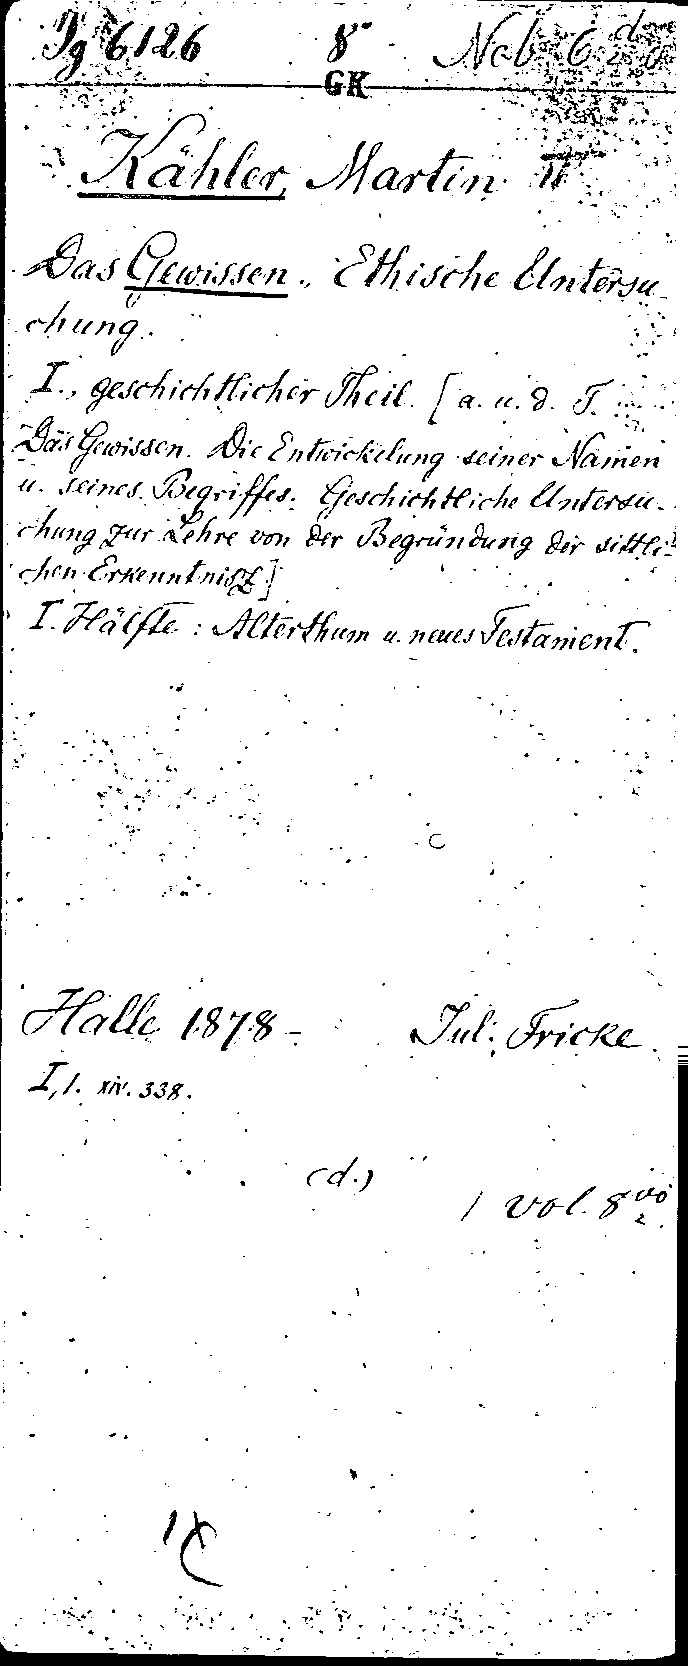 Ig 6126 8° Ncb 6
GK
Kähler, Martin II
Das Gewissen. Ethische Untersu
chung.
I., geschichtlicher Theil. [a. u. d. T.
Das Gewissen. Die Entwickelung seiner Namen
u. seines Begriffes. Geschichtliche Untersu-
chung zur Lehre von der Begründung der sittli-
chen Erkenntnisz]
I. Hälfte: Alterthum u. neues Testament.
Halle 1878 - Jul. Fricke.
I,1. xiv. 338.
(d.)
1 vol. 8vo